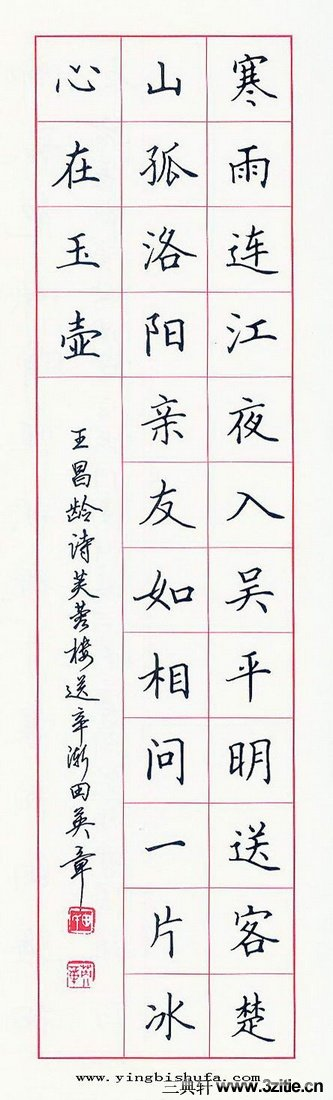 寒雨连江夜入吴平明送客楚
山孤洛阳亲友如相问一片冰
心在玉壶
王昌龄诗芙蓉楼送辛渐田英章
www.yingbishufa.com
三典轩 www.3zitie.cn